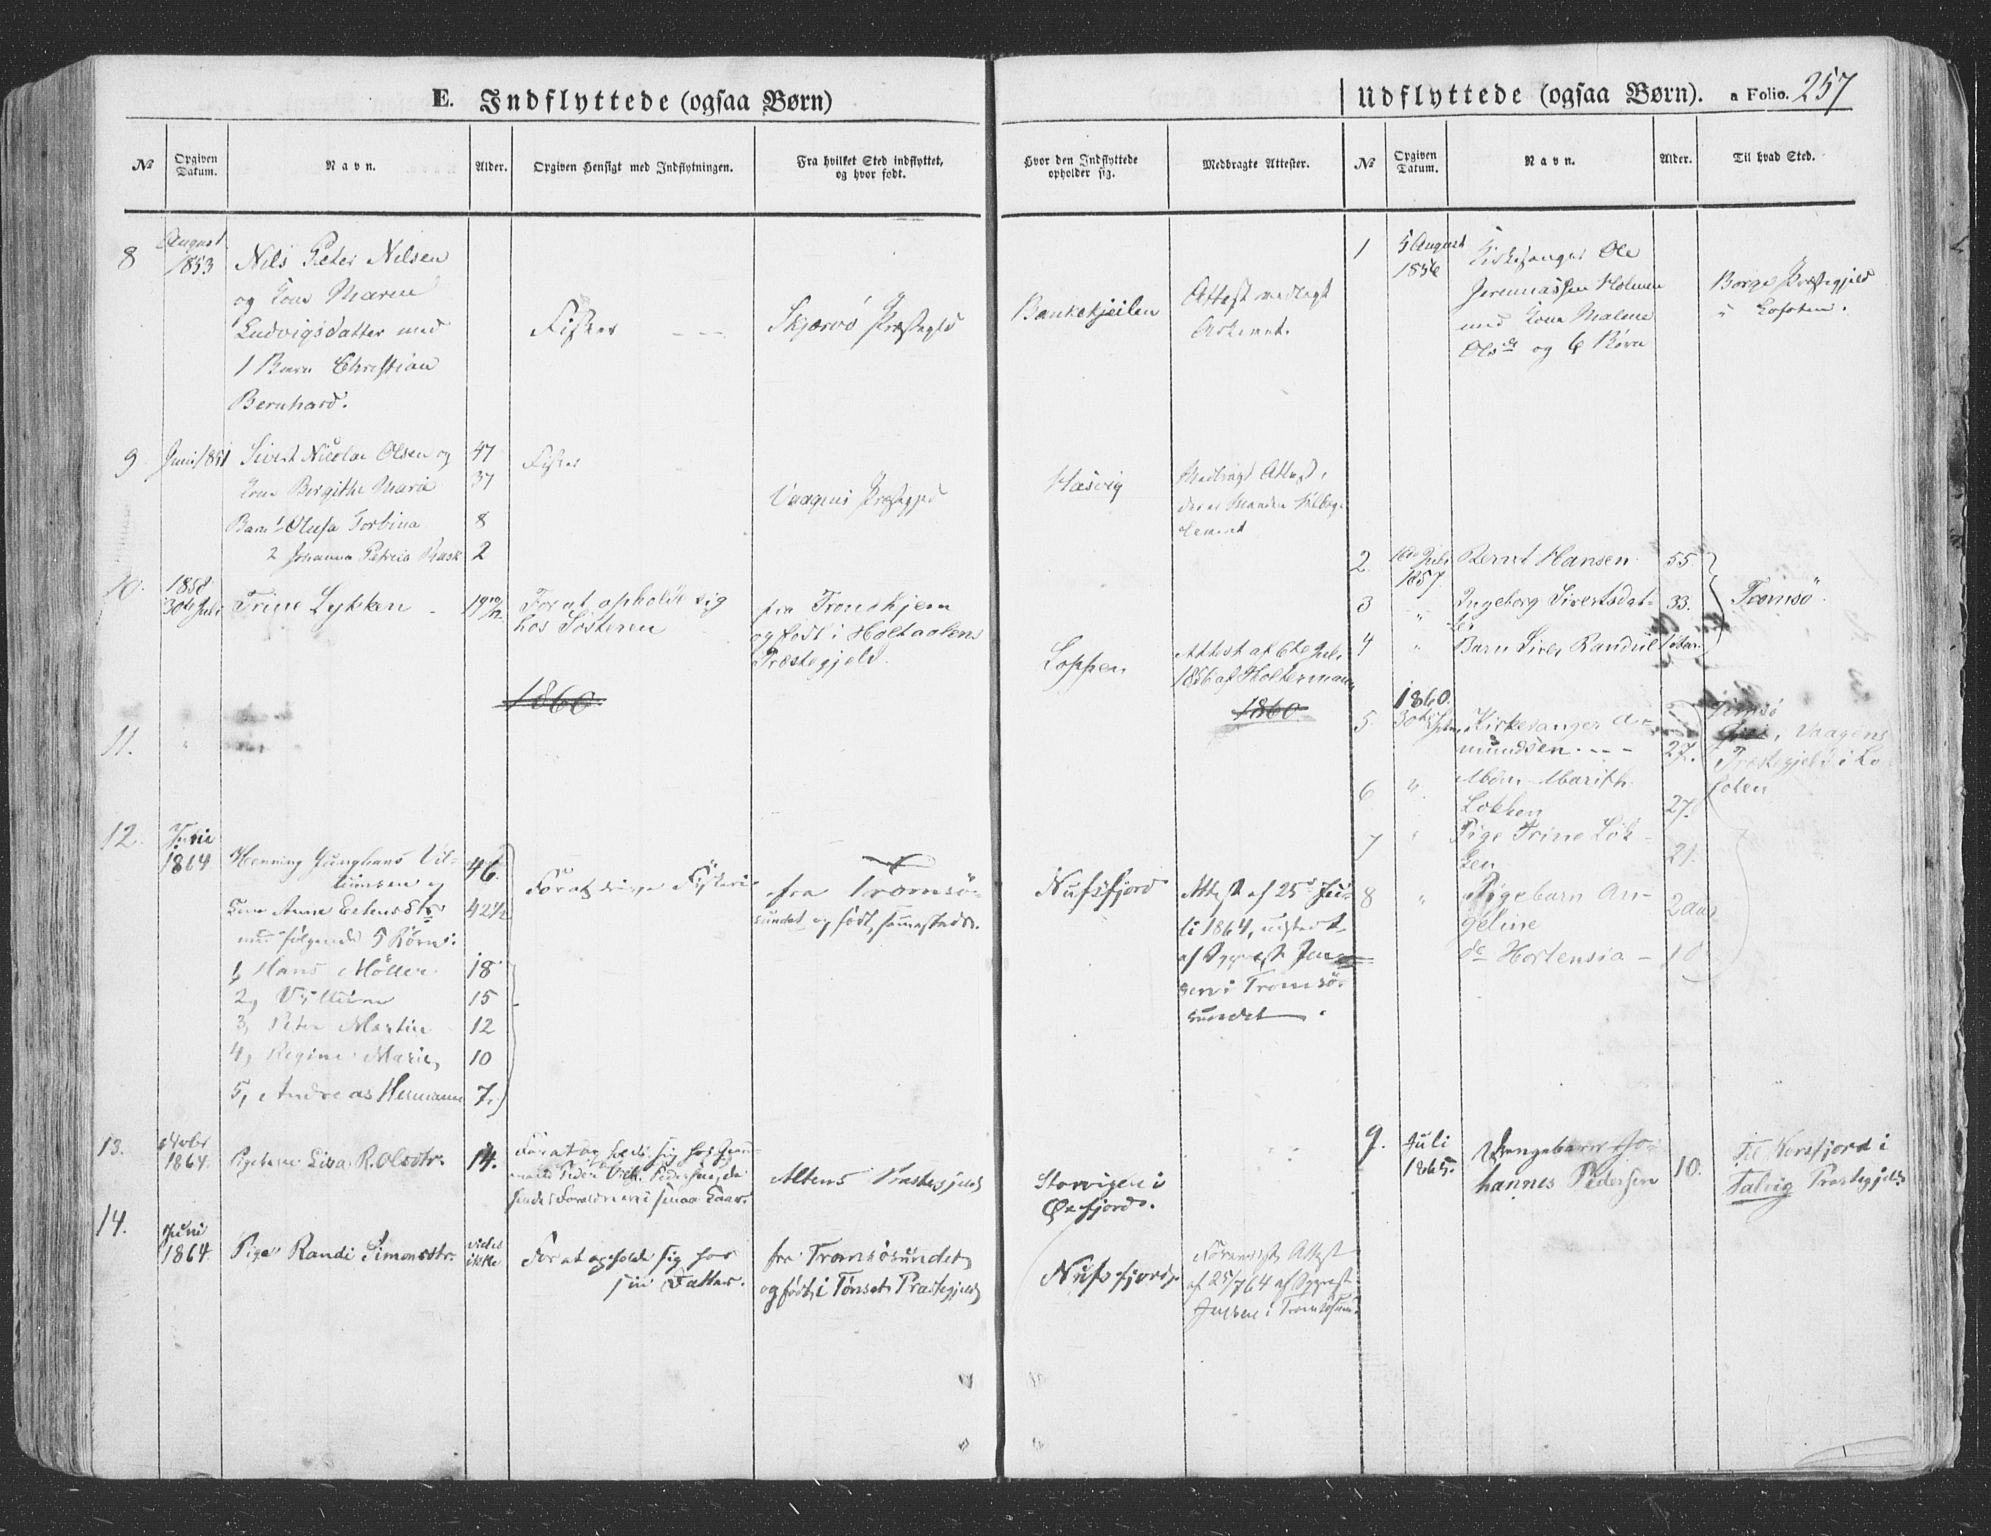 E. Indflyttede (ogsaa Børn)
Udflyttede (ogsaa Børn). a Folio. 257
No
Opgiven Datum.
Navn.
Alder.
Opgiven Hensigt med Indflytningen.
Fra hvilket Sted indflyttet,
og hvor født.
Hvor den Indflyttede
opholder sig.
Medbragte Attester.
No
Opgiven Datum.
Navn.
Alder.
Til hvad Sted.
8
August
1853
Nils Peter Nilsen
og Kone Maren
Ludvigsdatter med
1 Barn Christian
Bernhard.
Fisker
Skjærvø Præstegld
Bankekjeilen
Attest
9
Juni 1851
Sivert Nicolai Olsen og 47
Kone Bergithe Maria 37
Barn 1 Olufa Torbina 8
2 Johanna Petricia Rask 2
Fisker
Vaagens Præstegjeld
Hasvig
Medbragt Attest,
10.
1858
30te Juli
Trine Lykken
19 10/12
For at opholde sig
hos Søsteren
fra Tronhjem
og født i Holtaalens
Præstegjeld.
Loppen
Attest af 6te Juli
1856 af Holtermann
1860.
1860
11.
"
12.
Juni
1864
Henning Junghans Vil-
lumsen og 46.
Kone Anne 42 1/2
med følgende 5 Børn:
1, Hans Møller 18
2, Villum 15
3, Peter Martin 12
4, Regine Marie, 10
5, Andreas Hermann 7.
For at drive Fiskeri
fra Tromsø-
sundet og født sammesteds.
Nufsfjord
Attest af 25d Ju-
li 1864, udstedt
af Sgprest Jen-
sen i Tromsø-
sundet.
13.
1864.
Pigebarn Lisa R. Olsdtr. 14.
Altens Præstegjeld
Storvigen i
Øxfjord.
14.
Juni
1864
Pige Randi Simonsdtr.
vides
ikke
For at opholde sig hos
sin Datter.
fra Tromsøsundet
og født i Tønset Præstegjeld
Nufsfjord.
Attest
af 25/7 64 af Sgprest
Jensen i Tromsøsun.
1
5 August
1856
Kirkesanger Ole
Jeremiassen Holmen
med Kone Malene
Olsdr og 6 Børn
Borge Præstegjeld
i Lofoten.
2.
Juli
1857.
Bernt Hansen 55.
3 " Ingeborg Sivertsdat-
ter 33.
4 " Barn
Tromsø.
1860.
5.
30te
Kirkesanger A-
mundsen 27.
6 " Marith
Løkken 27.
7 " Pige Trine Løk-
ken 21.
8 " Pigebarn An-
geline 2 Aar
do Hortensia 10
Tromsø
Vaagens
Præstegjeld i Lo
foten
9.
Juli
1865.
Drengebarn Jo-
hannes Pedersen 10.
Til Korsfjord i
Talvig Præstegjeld